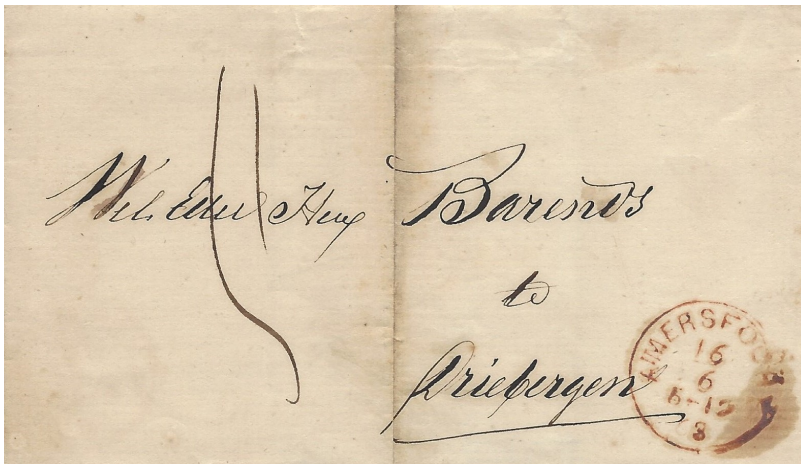 Wel. Edel Heer Barends
te
Driebergen
AMERSFOORT
16
6
8-12